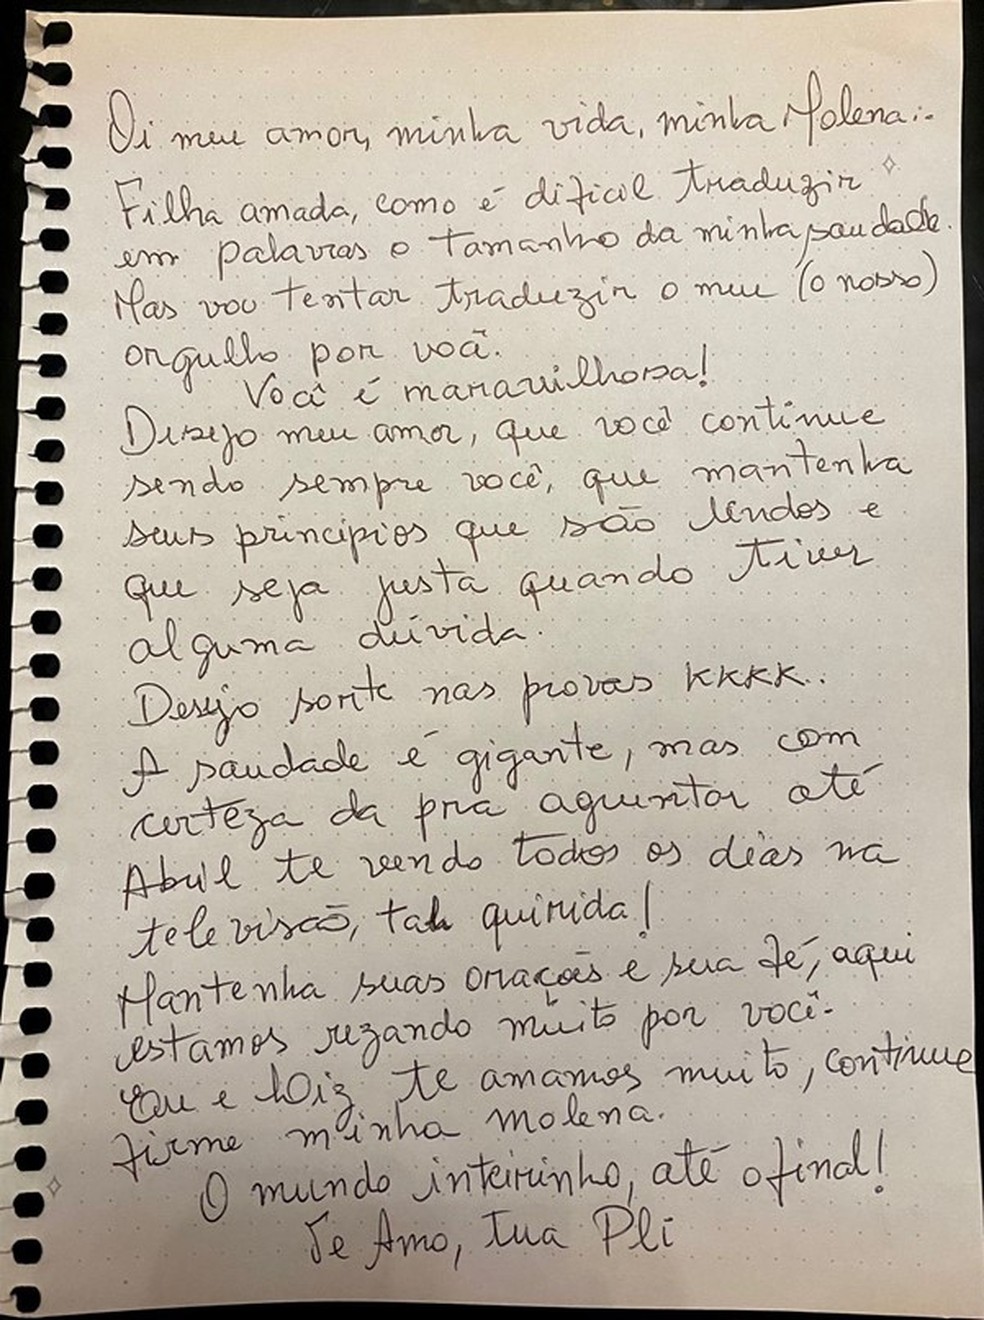 Oi meu amor, minha vida, minha Molena:.
Filha amada, como é dificil traduzir
em palavras o tamanho da minha saudade.
Mas vou tentar traduzir o meu (o nosso)
orgulho por você.
Você é maravilhosa!
Desejo meu amor, que você continue
sendo sempre você, que mantenha
seus princípios que são lindos e
que seja justa quando tiver
alguma dúvida.
Desejo sorte nas provas kkkk..
A saudade é gigante, mas com
certeza da pra aguentar até
Abril te vendo todos os dias na
televisão, tah quirida!
Mantenha suas orações e sua fé, aqui
estamos rezando muito por você.
Eu e Loiz te amamos muito, continue
firme minha molena.
O mundo inteirinho, até o final!
Te Amo, tua Pli